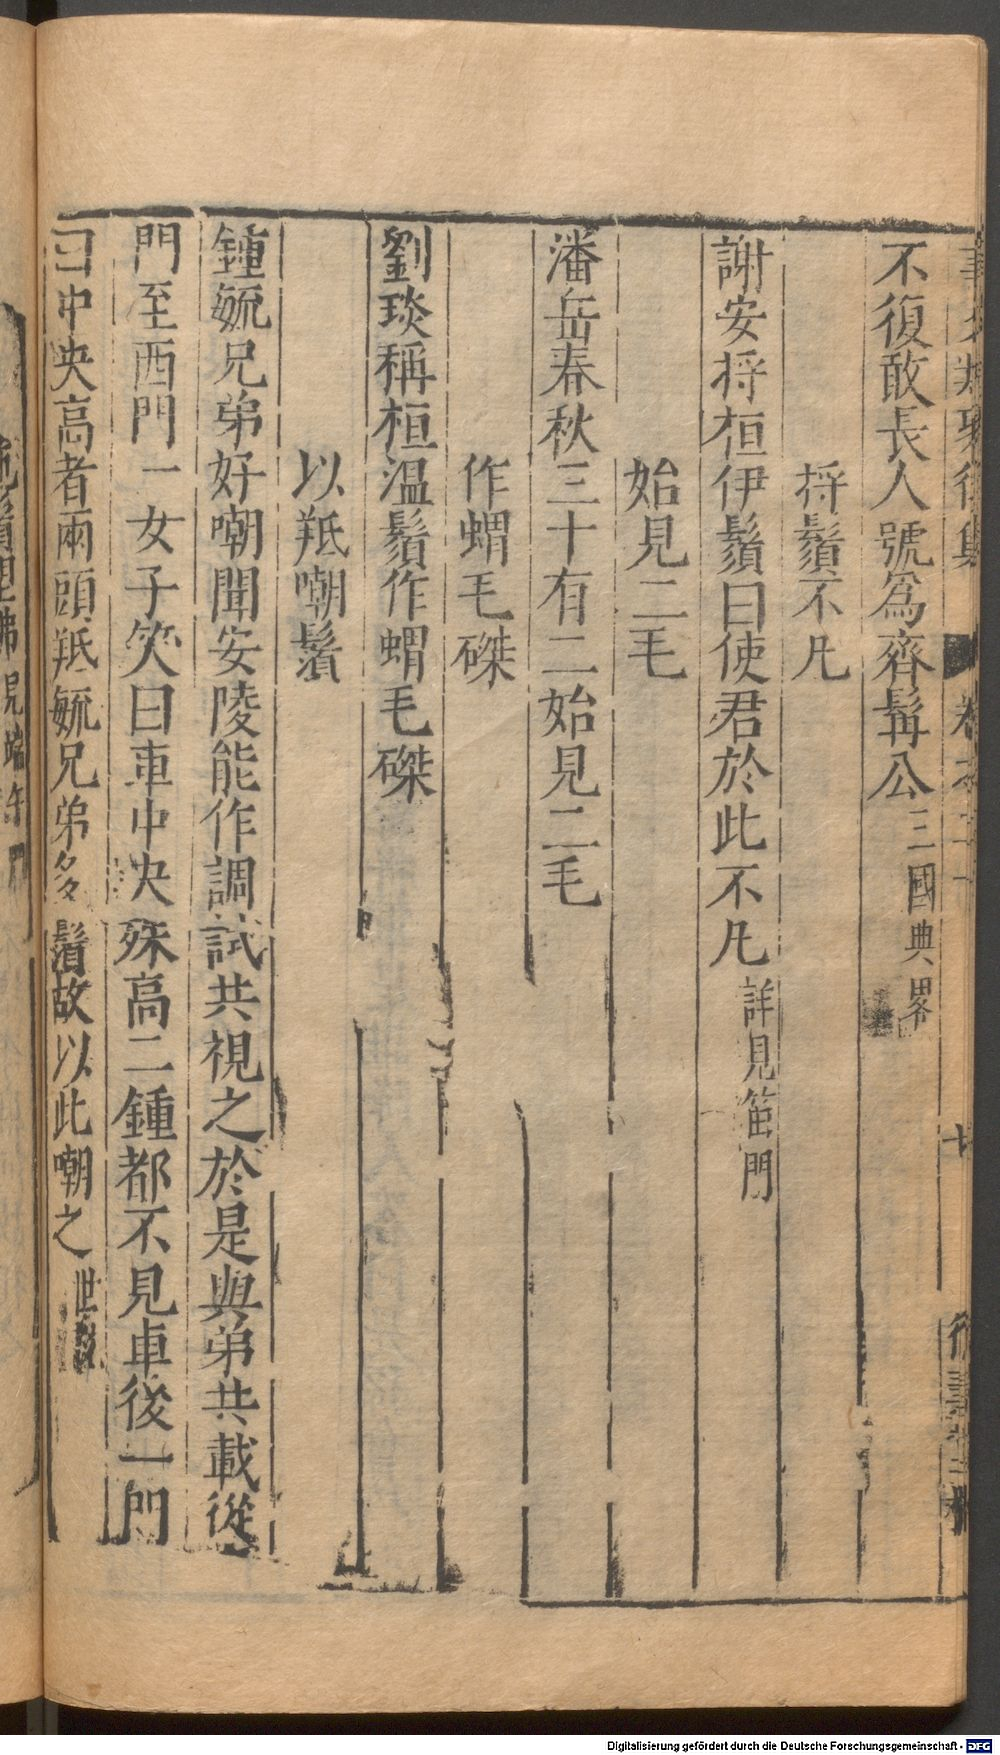 不復敢長人號爲齊髯公三國典畧
捋鬚不凡
謝安捋桓伊鬚曰使君於此不凡詳見笛門
始見二毛
潘岳春秋三十有二始見二毛
作蝟毛磔
劉琰稱桓溫鬚作蝟毛磔
以羝嘲鬚
鍾毓兄弟好嘲聞安陵能作調試共視之於是與弟共載從
門至西門一女子笑曰車中央殊高二鍾都不見車後一門
曰中央高者兩頭羝毓兄弟多鬚故以此嘲之世說
Digitalisierung gefördert durch die Deutsche Forschungsgemeinschaft - DFG